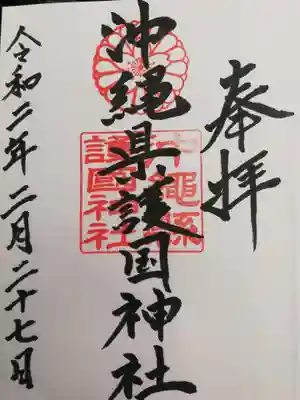 奉拝
沖縄県護国神社
沖縄縣
護國神社
令和二年二月二十七日